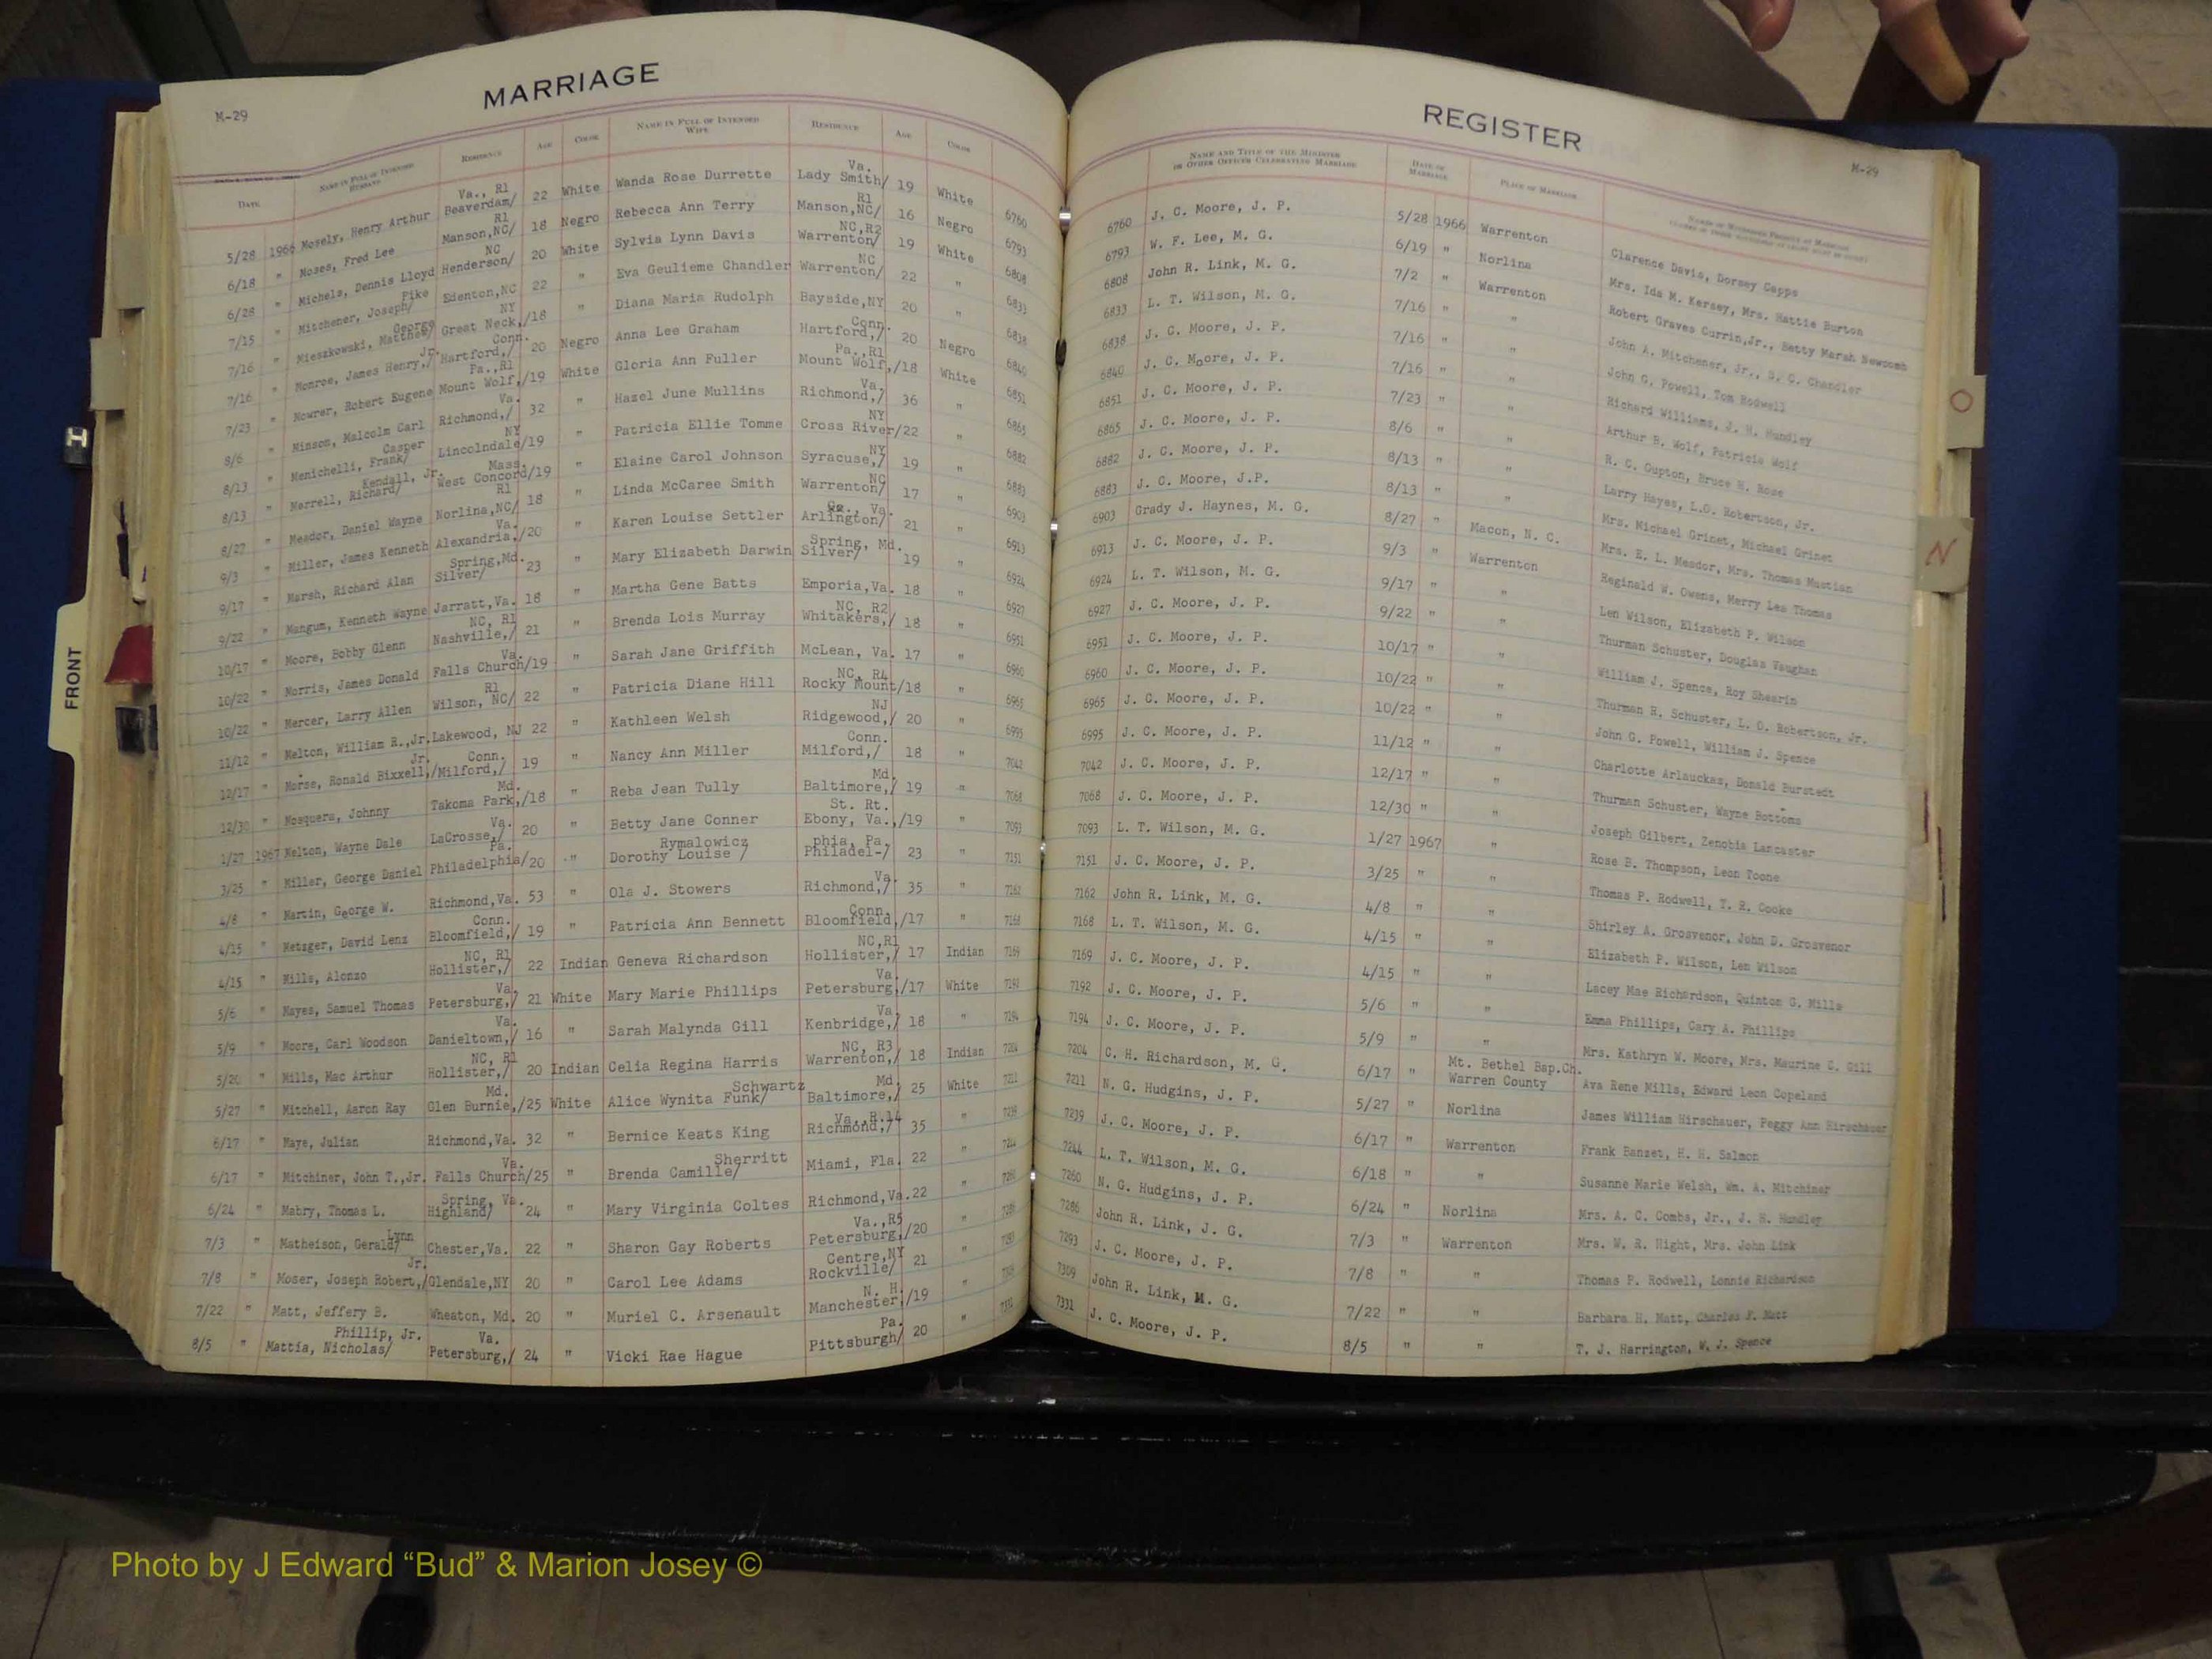 MARRIAGE
M-29
DATE NAME IN FULL OF INTENDED HUSBAND RESIDENCE AGE COLOR NAME IN FULL OF INTENDED WIFE RESIDENCE AGE COLOR
5/28 1966 Mosely, Henry Arthur Va., R1 Beaverdam/ 22 White Wanda Rose Durrette Va. Lady Smith/ 19 White 6760
6/18 " Moses, Fred Lee R1 Manson,NC/ 18 Negro Rebecca Ann Terry R1 Manson,NC/ 16 Negro 6793
6/28 " Michels, Dennis Lloyd NC Henderson/ 20 White Sylvia Lynn Davis NC,R2 Warrenton/ 19 White 6808
7/15 " Mitchener, Joseph/ Pike Edenton,NC 22 " Eva Geulieme Chandler NC Warrenton/ 22 " 6833
7/16 " Mieszkowski, Matthew/ George NY Great Neck,/18 " Diana Maria Rudolph Bayside,NY 20 " 6838
7/16 " Monroe, James Henry,/ Jr. Conn. Hartford,/ 20 Negro Anna Lee Graham Conn. Hartford,/ 20 Negro 6840
7/23 " Mowrer, Robert Eugene Pa.,R1 Mount Wolf,/19 White Gloria Ann Fuller Pa.,R1 Mount Wolf,/18 White 6851
8/6 " Minson, Malcolm Carl Va. Richmond,/ 32 " Hazel June Mullins Va. Richmond,/ 36 " 6865
8/13 " Menichelli, Frank/ Casper NY Lincolndale/19 " Patricia Ellie Tomme NY Cross River/22 " 6882
8/13 " Merrell, Richard/ Kendall, Jr. Mass. West Concord/19 " Elaine Carol Johnson NY Syracuse,/ 19 " 6883
8/27 " Meador, Daniel Wayne R1 Norlina,NC/ 18 " Linda McCaree Smith NC Warrenton/ 17 " 6903
9/3 " Miller, James Kenneth Va. Alexandria,/20 " Karen Louise Settler Co., Va. Arlington/ 21 " 6913
9/17 " Marsh, Richard Alan Spring,Md. Silver/ 23 " Mary Elizabeth Darwin Spring, Md. Silver/ 19 " 6924
9/22 " Mangum, Kenneth Wayne Jarratt,Va. 18 " Martha Gene Batts Emporia,Va. 18 " 6927
10/17 " Moore, Bobby Glenn NC, R1 Nashville,/ 21 " Brenda Lois Murray NC, R2 Whitakers,/ 18 " 6951
10/22 " Morris, James Donald Va. Falls Church/19 " Sarah Jane Griffith McLean, Va. 17 " 6960
10/22 " Mercer, Larry Allen R1 Wilson, NC/ 22 " Patricia Diane Hill NC, R4 Rocky Mount/18 " 6965
11/12 " Melton, William R.,Jr. Lakewood, NJ 22 " Kathleen Welsh NJ Ridgewood,/ 20 " 6995
12/17 " Morse, Ronald Bixxell,/ Jr. Conn. Milford,/ 19 " Nancy Ann Miller Conn. Milford,/ 18 " 7042
12/30 " Mosquera, Johnny Md. Takoma Park,/18 " Reba Jean Tully Md. Baltimore,/ 19 " 7068
1/27 1967 Melton, Wayne Dale Va. LaCrosse,/ 20 " Betty Jane Conner St. Rt. Ebony, Va.,/19 " 7093
3/25 " Miller, George Daniel Pa. Philadelphia/20 " Rymalowicz Dorothy Louise / phia, Pa. Philadel-/ 23 " 7151
4/8 " Martin, George W. Richmond,Va. 53 " Ola J. Stowers Va. Richmond,/ 35 " 7162
4/15 " Metzger, David Lenz Conn. Bloomfield,/ 19 " Patricia Ann Bennett Conn. Bloomfield,/17 " 7168
4/15 " Mills, Alonzo NC, R1 Hollister,/ 22 Indian Geneva Richardson NC,R1 Hollister,/ 17 Indian 7169
5/6 " Mayes, Samuel Thomas Va. Petersburg,/ 21 White Mary Marie Phillips Va. Petersburg,/17 White 7192
5/9 " Moore, Carl Woodson Va. Danieltown,/ 16 " Sarah Malynda Gill Va. Kenbridge,/ 18 " 7194
5/20 " Mills, Mac Arthur NC, R1 Hollister,/ 20 Indian Celia Regina Harris NC, R3 Warrenton,/ 18 Indian 7204
5/27 " Mitchell, Aaron Ray Md. Glen Burnie,/25 White Alice Wynita Funk/ Schwartz Md. Baltimore,/ 25 White 7211
6/17 " Maye, Julian Richmond,Va. 32 " Bernice Keats King Va.,R.14 Richmond,/ 35 " 7239
6/17 " Mitchiner, John T.,Jr. Va. Falls Church/25 " Brenda Camille/ Sherritt Miami, Fla. 22 " 7244
6/24 " Mabry, Thomas L. Spring, Va. Highland/ 24 " Mary Virginia Coltes Richmond,Va.22 " 7260
7/3 " Matheison, Gerald/ Lynn Chester,Va. 22 " Sharon Gay Roberts Va.,R5 Petersburg,/20 " 7286
7/8 " Moser, Joseph Robert,/ Jr. Glendale,NY 20 " Carol Lee Adams Centre,NY Rockville/ 21 " 7293
7/22 " Matt, Jeffery B. Wheaton, Md. 20 " Muriel C. Arsenault N. H. Manchester,/19 " 7309
8/5 " Mattia, Nicholas/ Phillip, Jr. Va. Petersburg,/ 24 " Vicki Rae Hague Pa. Pittsburgh/ 20 " 7331
REGISTER
M-29
NAME AND TITLE OF THE MINISTER OR OTHER OFFICER CELEBRATING MARRIAGE DATE OF MARRIAGE PLACE OF MARRIAGE
6760 J. C. Moore, J. P. 5/28 1966 Warrenton Clarence Davis, Dorsey Capps
6793 W. F. Lee, M. G. 6/19 " Norlina Mrs. Ida M. Kersey, Mrs. Hattie Burton
6808 John R. Link, M. G. 7/2 " Warrenton Robert Graves Currin,Jr., Betty Marsh Newcomb
6833 L. T. Wilson, M. G. 7/16 " " John A. Mitchener, Jr., S. C. Chandler
6838 J. C. Moore, J. P. 7/16 " " John G. Powell, Tom Rodwell
6840 J. C. Moore, J. P. 7/16 " " Richard Williams, J. H. Hundley
6851 J. C. Moore, J. P. 7/23 " " Arthur B. Wolf, Patricia Wolf
6865 J. C. Moore, J. P. 8/6 " " R. C. Gupton, Bruce H. Rose
6882 J. C. Moore, J. P. 8/13 " " Larry Hayes, L.O. Robertson, Jr.
6883 J. C. Moore, J.P. 8/13 " " Mrs. Michael Grinet, Michael Grinet
6903 Grady J. Haynes, M. G. 8/27 " Macon, N. C. Mrs. E. L. Meador, Mrs. Thomas Mustian
6913 J. C. Moore, J. P. 9/3 " Warrenton Reginald W. Owens, Merry Lea Thomas
6924 L. T. Wilson, M. G. 9/17 " " Len Wilson, Elizabeth P. Wilson
6927 J. C. Moore, J. P. 9/22 " " Thurman Schuster, Douglas Vaughan
6951 J. C. Moore, J. P. 10/17 " " William J. Spence, Roy Shearin
6960 J. C. Moore, J. P. 10/22 " " Thurman R. Schuster, L. O. Robertson, Jr.
6965 J. C. Moore, J. P. 10/22 " " John G. Powell, William J. Spence
6995 J. C. Moore, J. P. 11/12 " " Charlotte Arlauckas, Donald Burstedt
7042 J. C. Moore, J. P. 12/17 " " Thurman Schuster, Wayne Bottoms
7068 J. C. Moore, J. P. 12/30 " " Joseph Gilbert, Zenobia Lancaster
7093 L. T. Wilson, M. G. 1/27 1967 " Rose B. Thompson, Leon Toone
7151 J. C. Moore, J. P. 3/25 " " Thomas P. Rodwell, T. R. Cooke
7162 John R. Link, M. G. 4/8 " " Shirley A. Grosvenor, John D. Grosvenor
7168 L. T. Wilson, M. G. 4/15 " " Elizabeth P. Wilson, Len Wilson
7169 J. C. Moore, J. P. 4/15 " " Lacey Mae Richardson, Quinton G. Mills
7192 J. C. Moore, J. P. 5/6 " " Emma Phillips, Cary A. Phillips
7194 J. C. Moore, J. P. 5/9 " " Mrs. Kathryn W. Moore, Mrs. Maurine C. Gill
7204 C. H. Richardson, M. G. 6/17 " Mt. Bethel Bap.Ch. Warren County Ava Rene Mills, Edward Leon Copeland
7211 N. G. Hudgins, J. P. 5/27 " Norlina James William Hirschauer, Peggy Ann Hirschauer
7239 J. C. Moore, J. P. 6/17 " Warrenton Frank Banzet, H. H. Salmon
7244 L. T. Wilson, M. G. 6/18 " " Susanne Marie Welsh, Wm. A. Mitchiner
7260 N. G. Hudgins, J. P. 6/24 " Norlina Mrs. A. C. Combs, Jr., J. H. Hundley
7286 John R. Link, J. G. 7/3 " Warrenton Mrs. W. R. Hight, Mrs. John Link
7293 J. C. Moore, J. P. 7/8 " " Thomas P. Rodwell, Lonnie Richardson
7309 John R. Link, M. G. 7/22 " " Barbara H. Matt, Charles F. Matt
7331 J. C. Moore, J. P. 8/5 " " T. J. Harrington, W. J. Spence
O
N
FRONT
Photo by J Edward “Bud” & Marion Josey ©